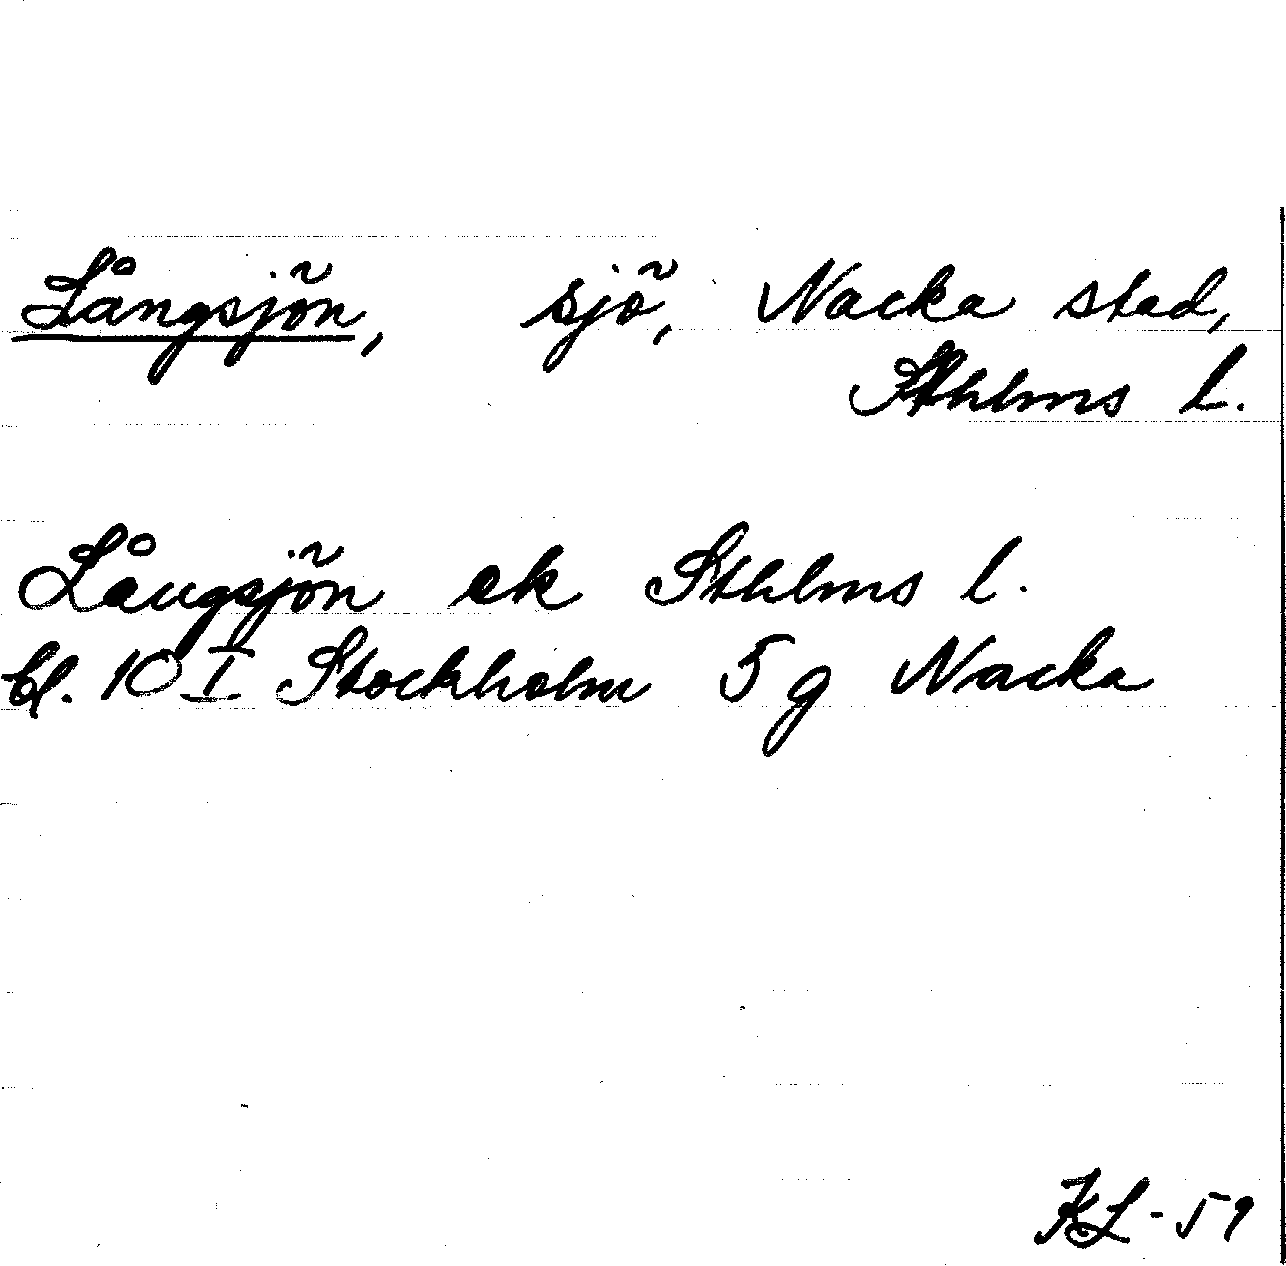 Långsjön, sjö, Nacka stad,
Sthlms l.
Långsjön ek Sthlms l.
bl. 10 I Stockholm 5 g Nacka
KL-59